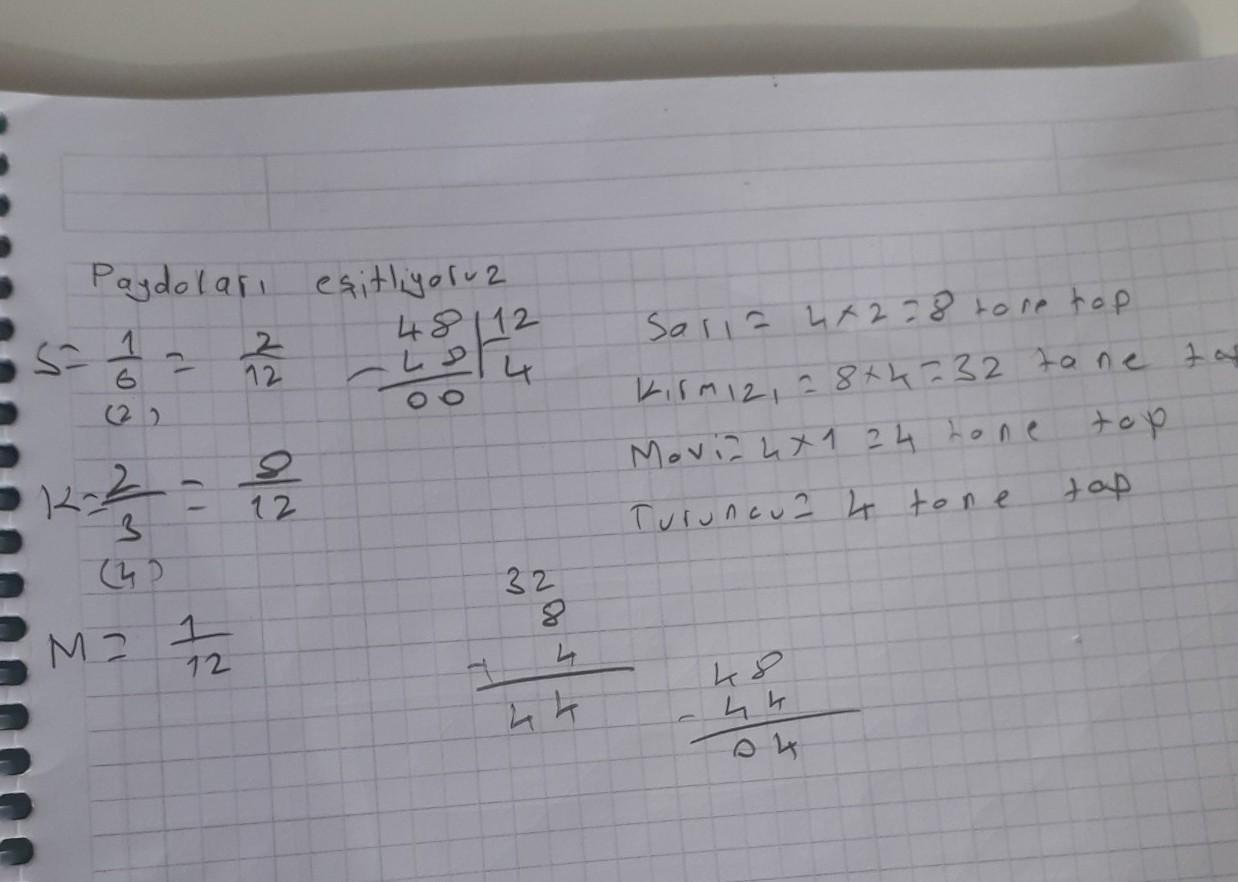 Paydaları eşitliyoruz
S= 1/6 = 2/12
(2)
48 | 12
- 48 | 4
00
K= 2/3 = 8/12
(4)
M= 1/12
Sarı = 4x2=8 tane top
Kırmızı = 8x4=32 tane to
Mavi= 4x1=4 tane top
Turuncu= 4 tane top
32
8
+ 4
44
48
- 44
04